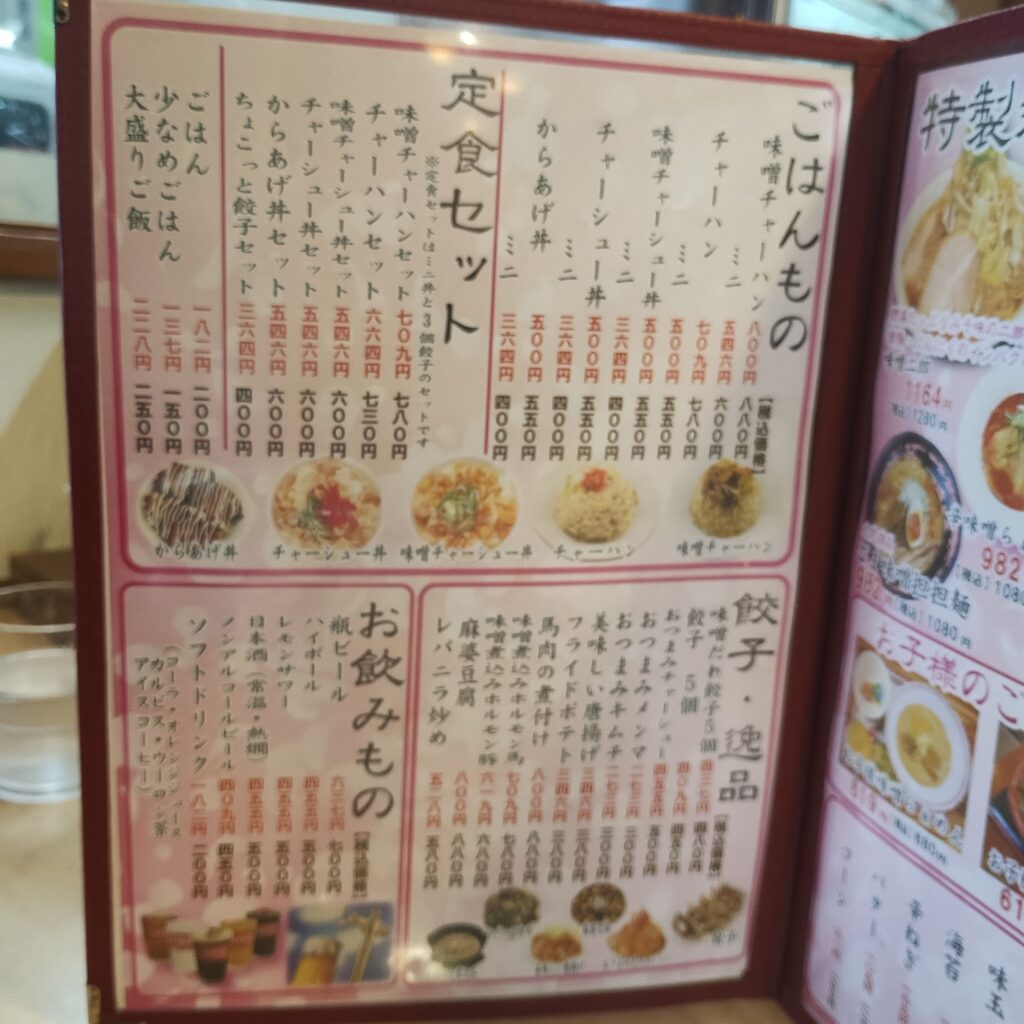 ごはんもの
[税込価格]
味噌チャーハン 八〇〇円 八八〇円
ミニ 五四六円 六〇〇円
チャーハン 七〇九円 七八〇円
ミニ 五〇〇円 五五〇円
味噌チャーシュー丼 五〇〇円 五五〇円
ミニ 三六四円 四〇〇円
チャーシュー丼 五〇〇円 五五〇円
ミニ 三六四円 四〇〇円
からあげ丼 五〇〇円 五五〇円
ミニ 三六四円 四〇〇円
定食セット
※定食セットはミニ丼と3個餃子のセットです
味噌チャーハンセット 七〇九円 七八〇円
チャーハンセット 六六四円 七三〇円
味噌チャーシュー丼セット 五四六円 六〇〇円
チャーシュー丼セット 五四六円 六〇〇円
からあげ丼セット 五四六円 六〇〇円
ちょこっと餃子セット 三六四円 四〇〇円
ごはん 一八二円 二〇〇円
少なめごはん 一三七円 一五〇円
大盛りご飯 二二八円 二五〇円
からあげ丼
チャーシュー丼
味噌チャーシュー丼
チャーハン
味噌チャーハン
餃子・逸品
[税込価格]
味噌だれ餃子5個 四三七円 四八〇円
餃子 5個 四〇九円 四五〇円
おつまみチャーシュー 四五五円 五〇〇円
おつまみメンマ 二七三円 三〇〇円
おつまみキムチ 二七三円 三〇〇円
美味しい唐揚げ 三四六円 三八〇円
フライドポテト 三四六円 三八〇円
馬肉の煮付け 八〇〇円 八八〇円
味噌煮込みホルモン馬 七〇九円 七八〇円
味噌煮込みホルモン豚 六一九円 六八〇円
麻婆豆腐 八〇〇円 八八〇円
レバニラ炒め 五二八円 五八〇円
お飲みもの
[税込価格]
瓶ビール 六三七円 七〇〇円
ハイボール 四五五円 五〇〇円
レモンサワー 四五五円 五〇〇円
日本酒(常温・熱燗) 四五五円 五〇〇円
ノンアルコールビール 四〇九円 四五〇円
ソフトドリンク 一八二円 二〇〇円
(コーラ・オレンジジュース
カルピス・ウーロン茶
アイスコーヒー)
特製
味噌二郎
1164円
[税込]1280円
辛味噌ら
982
[税込]1080
担担麺
982円[税込]1080円
お子様のご
コーン
バター
辛ねぎ
海苔
味玉